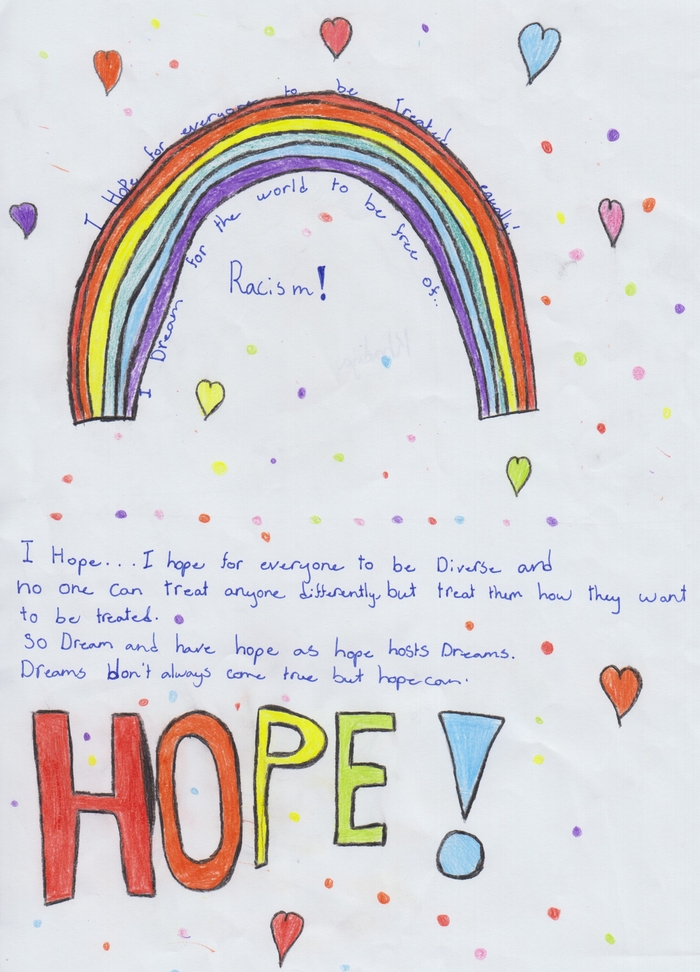 I Hope for everyone to be Treated equally
I Dream for the world to be free of..
Racism!
I Hope... I hope for everyone to be Diverse and
no one can treat anyone differently, but treat them how they want
to be treated.
So Dream and have hope as hope hosts Dreams.
Dreams don't always come true but hope can.
HOPE!